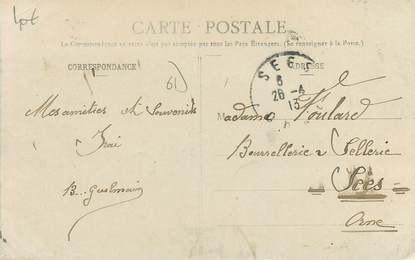 Lot
CARTE POSTALE
La Correspondance au recto n'est pas acceptée par tous les Pays Étrangers. (Se renseigner à la Poste.)
CORRESPONDANCE
ADRESSE
61
SEES
6
26-4
13
Mes amitiés et Souvenirs
B. Guelmain
Madame Foulard
Bourrellerie & Sellerie
Sées
Orne